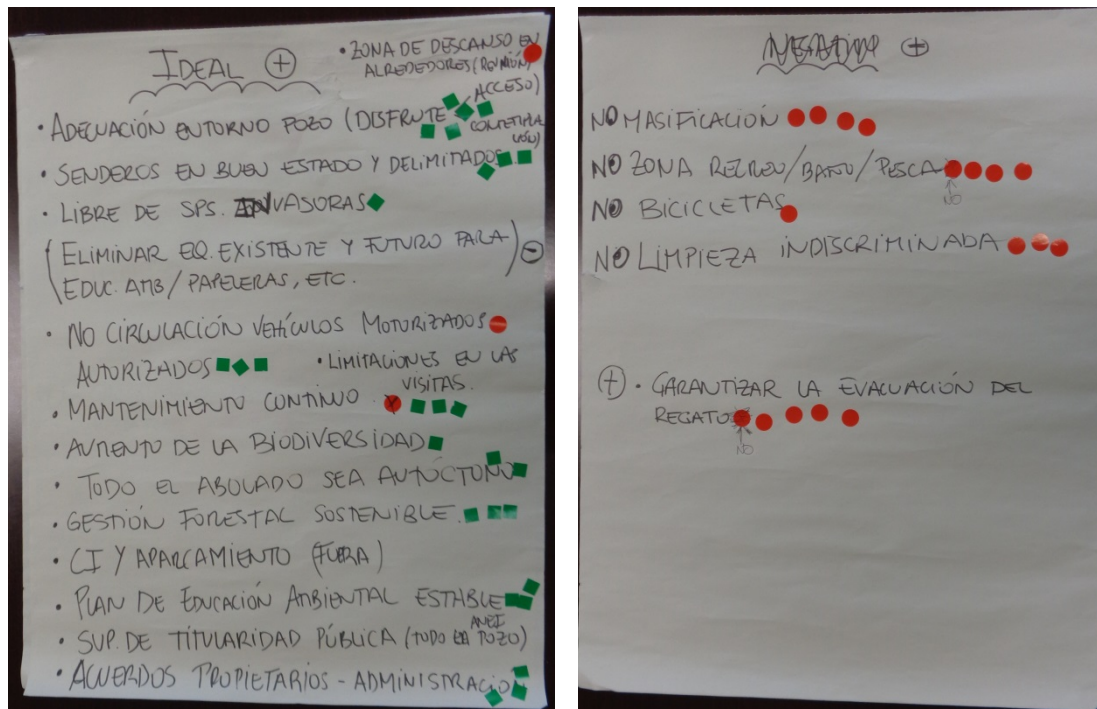 IDEAL +
• ZONA DE DESCANSO EN
ALREDEDORES (REUNIÓN,
ACCESO)
• ADECUACIÓN ENTORNO POZO (DISFRUTE
CONTEMPLA
CIÓN)
• SENDEROS EN BUEN ESTADO Y DELIMITADOS
• LIBRE DE SPS. INVASORAS
(ELIMINAR EQ. EXISTENTE Y FUTURO PARA
EDUC. AMB/PAPELERAS, ETC.) -
• NO CIRCULACIÓN VEHÍCULOS MOTORIZADOS
AUTORIZADOS
• LIMITACIONES EN LAS
VISITAS.
• MANTENIMIENTO CONTINUO
• AUMENTO DE LA BIODIVERSIDAD
• TODO EL ABOLADO SEA AUTÓCTONO
• GESTIÓN FORESTAL SOSTENIBLE.
• CI Y APARCAMIENTO (FUERA)
• PLAN DE EDUCACIÓN AMBIENTAL ESTABLE
• SUP. DE TITULARIDAD PÚBLICA (TODO POZO)
ANEI
• ACUERDOS PROPIETARIOS - ADMINISTRACIÓN
NEGATIVO +
NO MASIFICACIÓN
NO ZONA RECREO/BAÑO/PESCA
NO
NO BICICLETAS
NO LIMPIEZA INDISCRIMINADA
+ • GARANTIZAR LA EVACUACIÓN DEL
REGATO
NO